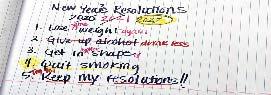 New Year's Resolutions
2020 2021 2022
1. Lose weight again
2. Give up alcohol drink less
3. Get in shape
4. Quit smoking
5. Keep my resolutions!!